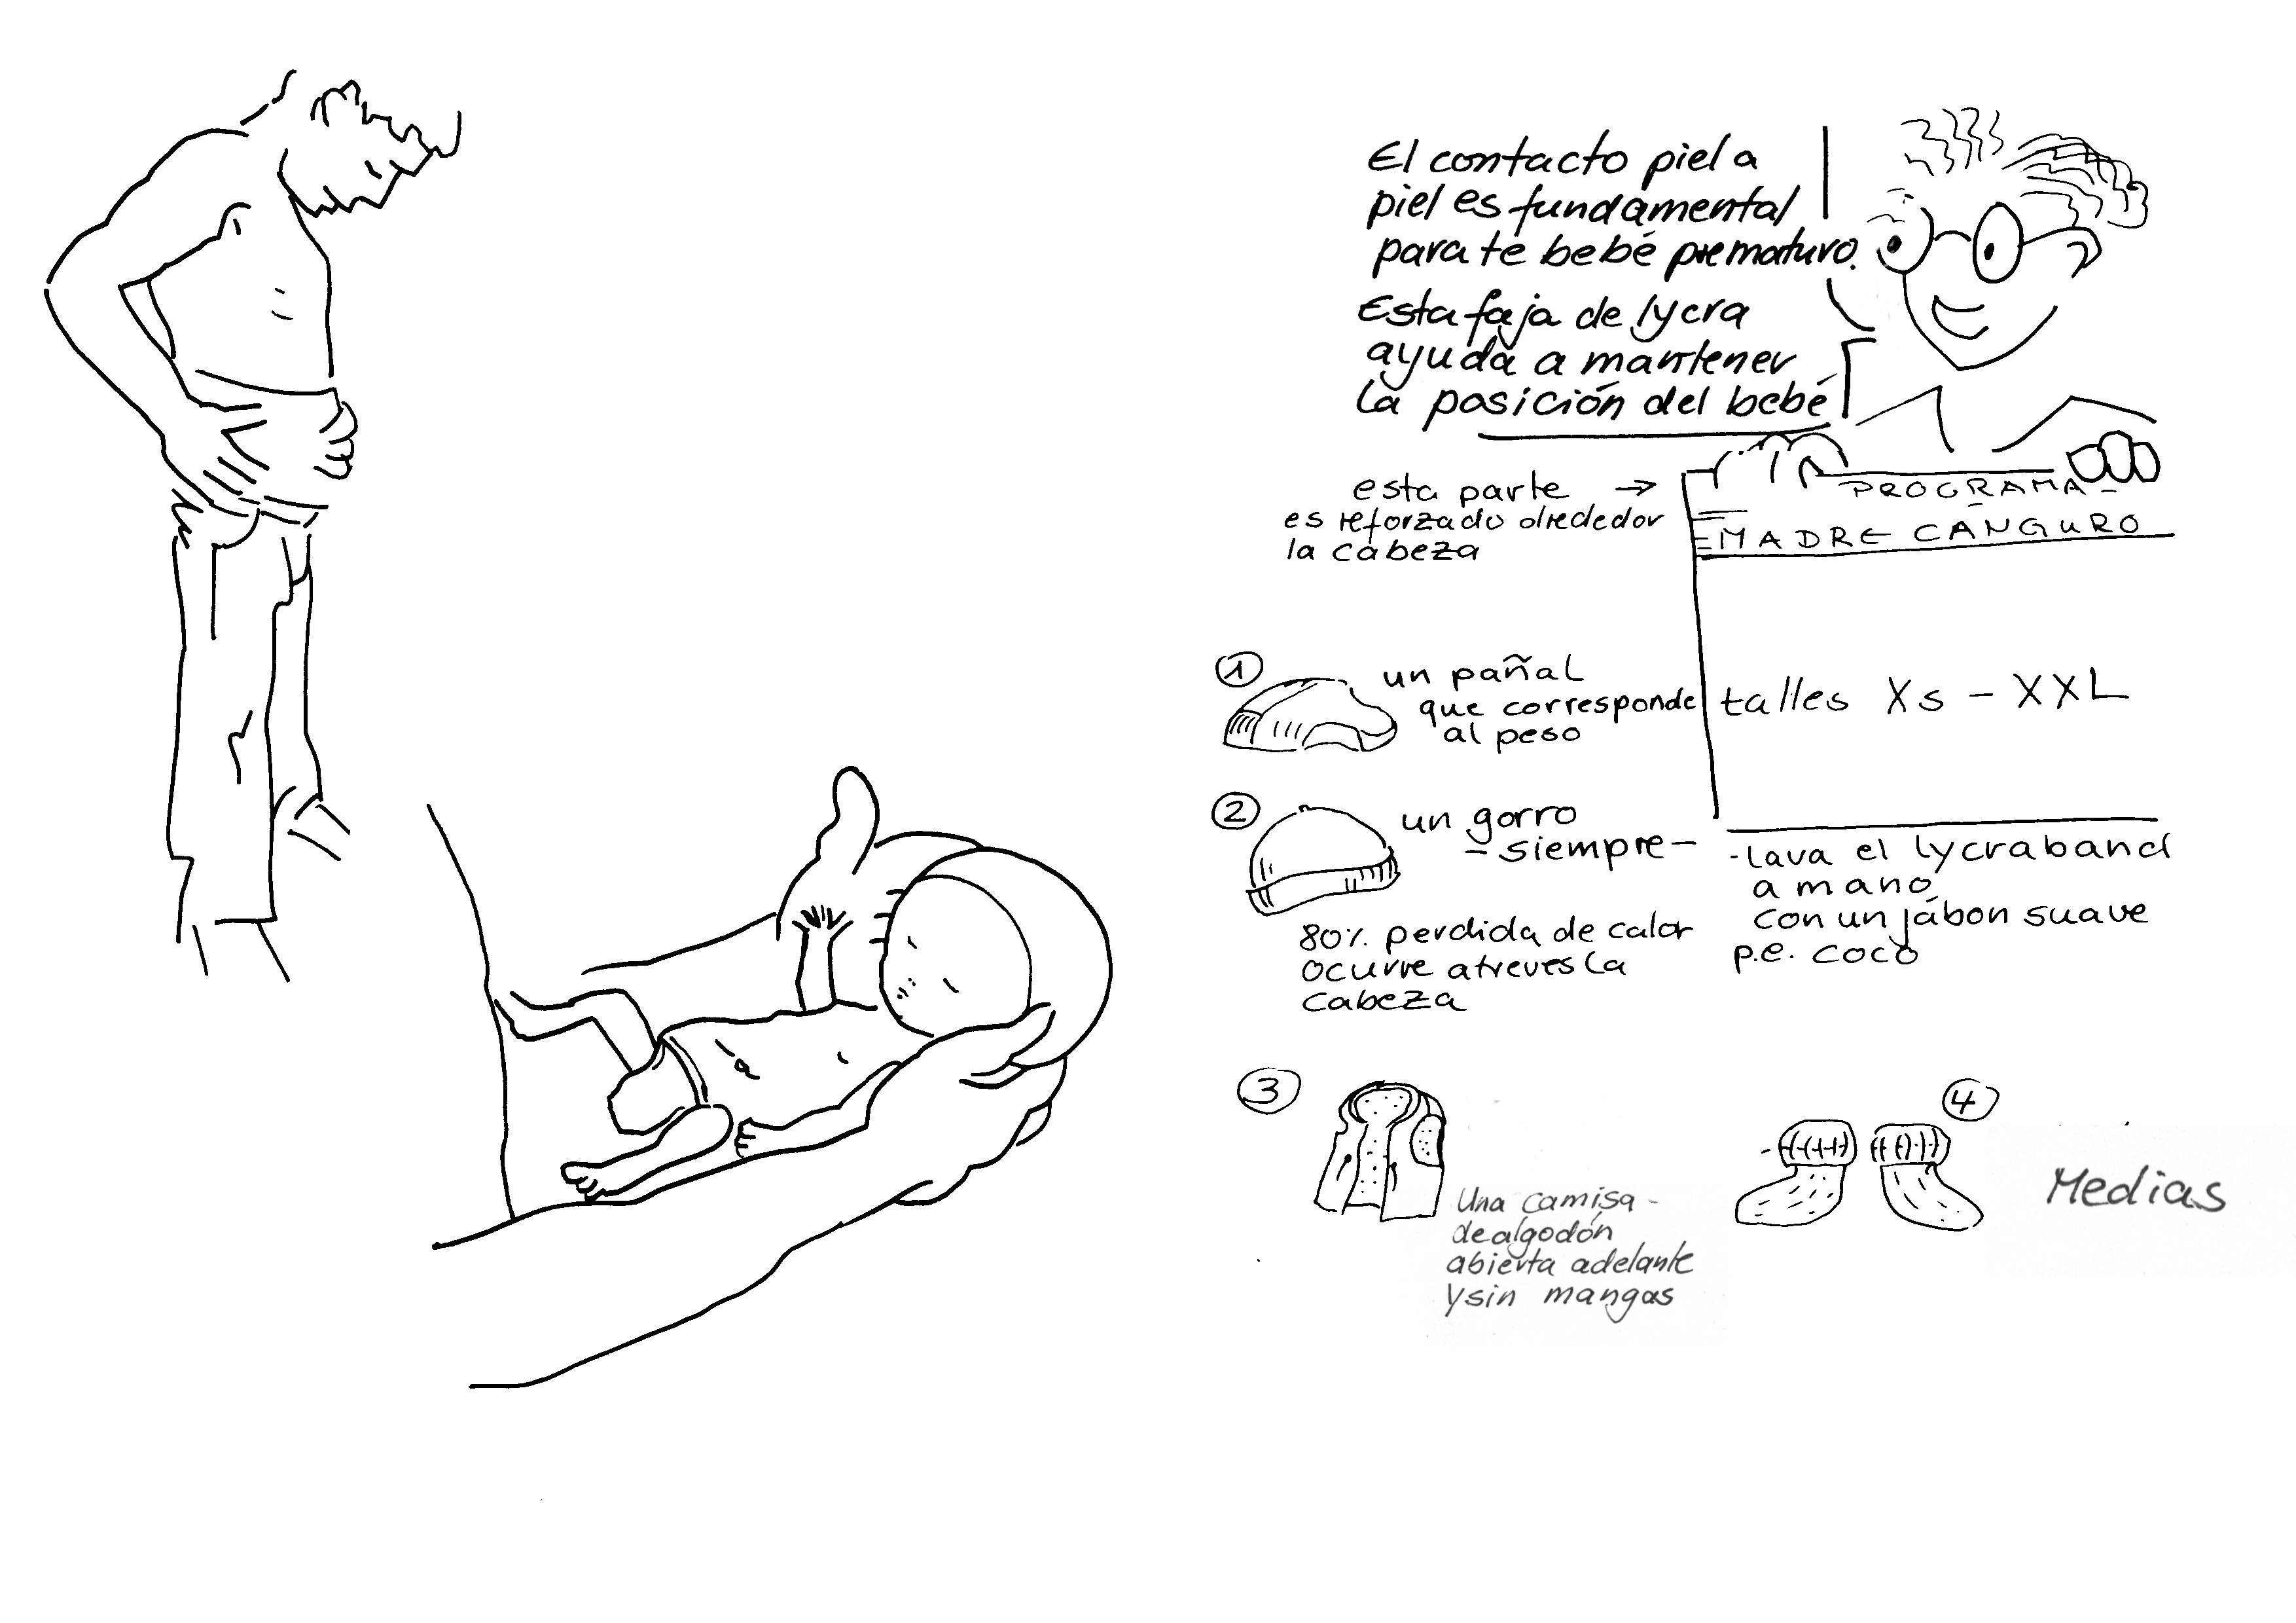 El contacto piel a
piel es fundamental
para te bebé prematuro.
Esta faja de lycra
ayuda a mantener
la posición del bebé
esta parte →
es reforzado olrededor
la cabeza
PROGRAMA
MADRE CANGURO
talles Xs - XXL
-lava el lycraband
a mano
con un jábon suave
p.e. coco
1
un pañal
que corresponde
al peso
2
un gorro
-siempre-
80% perdida de calor
ocurre atreves la
cabeza
3
Una camisa
de algodón
abierta adelante
y sin mangas
4
Medias